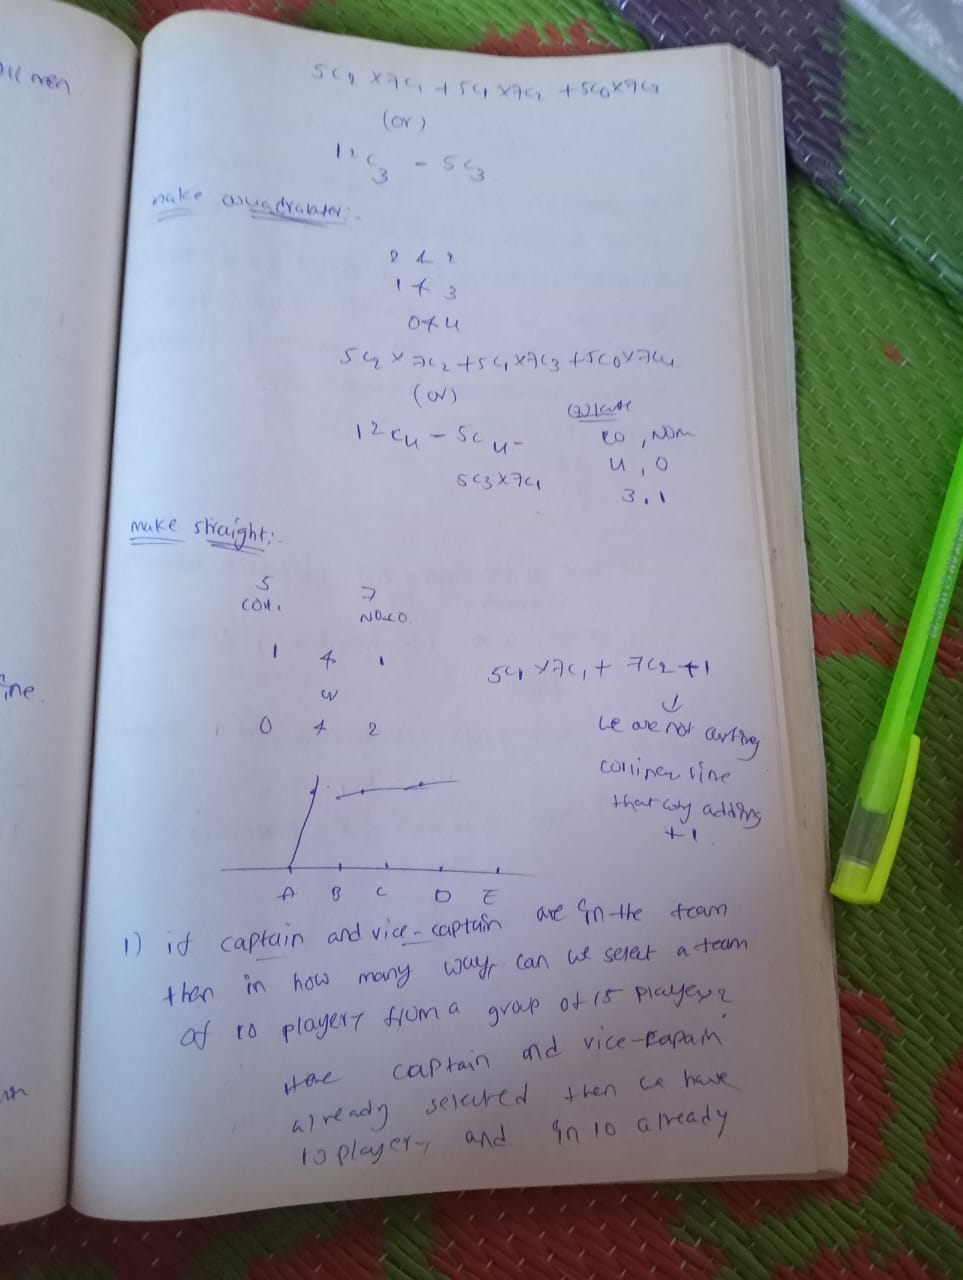 men
5C2 x 7C1 + 5C1 x 7C2 + 5C0 x 7C3
(or)
12C3 - 5C3
make quadralater:-
2 & 2
1 & 3
0 & 4
5C2 x 7C2 + 5C1 x 7C3 + 5C0 x 7C4
(or)
12C4 - 5C4 -
5C3 x 7C1
co, Non
4, 0
3, 1
make straight:-
5 7
Con. No.co.
1 & 1
0 & 2
5C1 x 7C1 + 7C2 + 1
we are not
line
that why adding
+1
A B C D E
ine.
1) if captain and vice-captain are in the team
then in how many way, can we select a team
of 10 players from a group of 15 players?
Here captain and vice-captain
already selected then we have
13 players and in 10 already